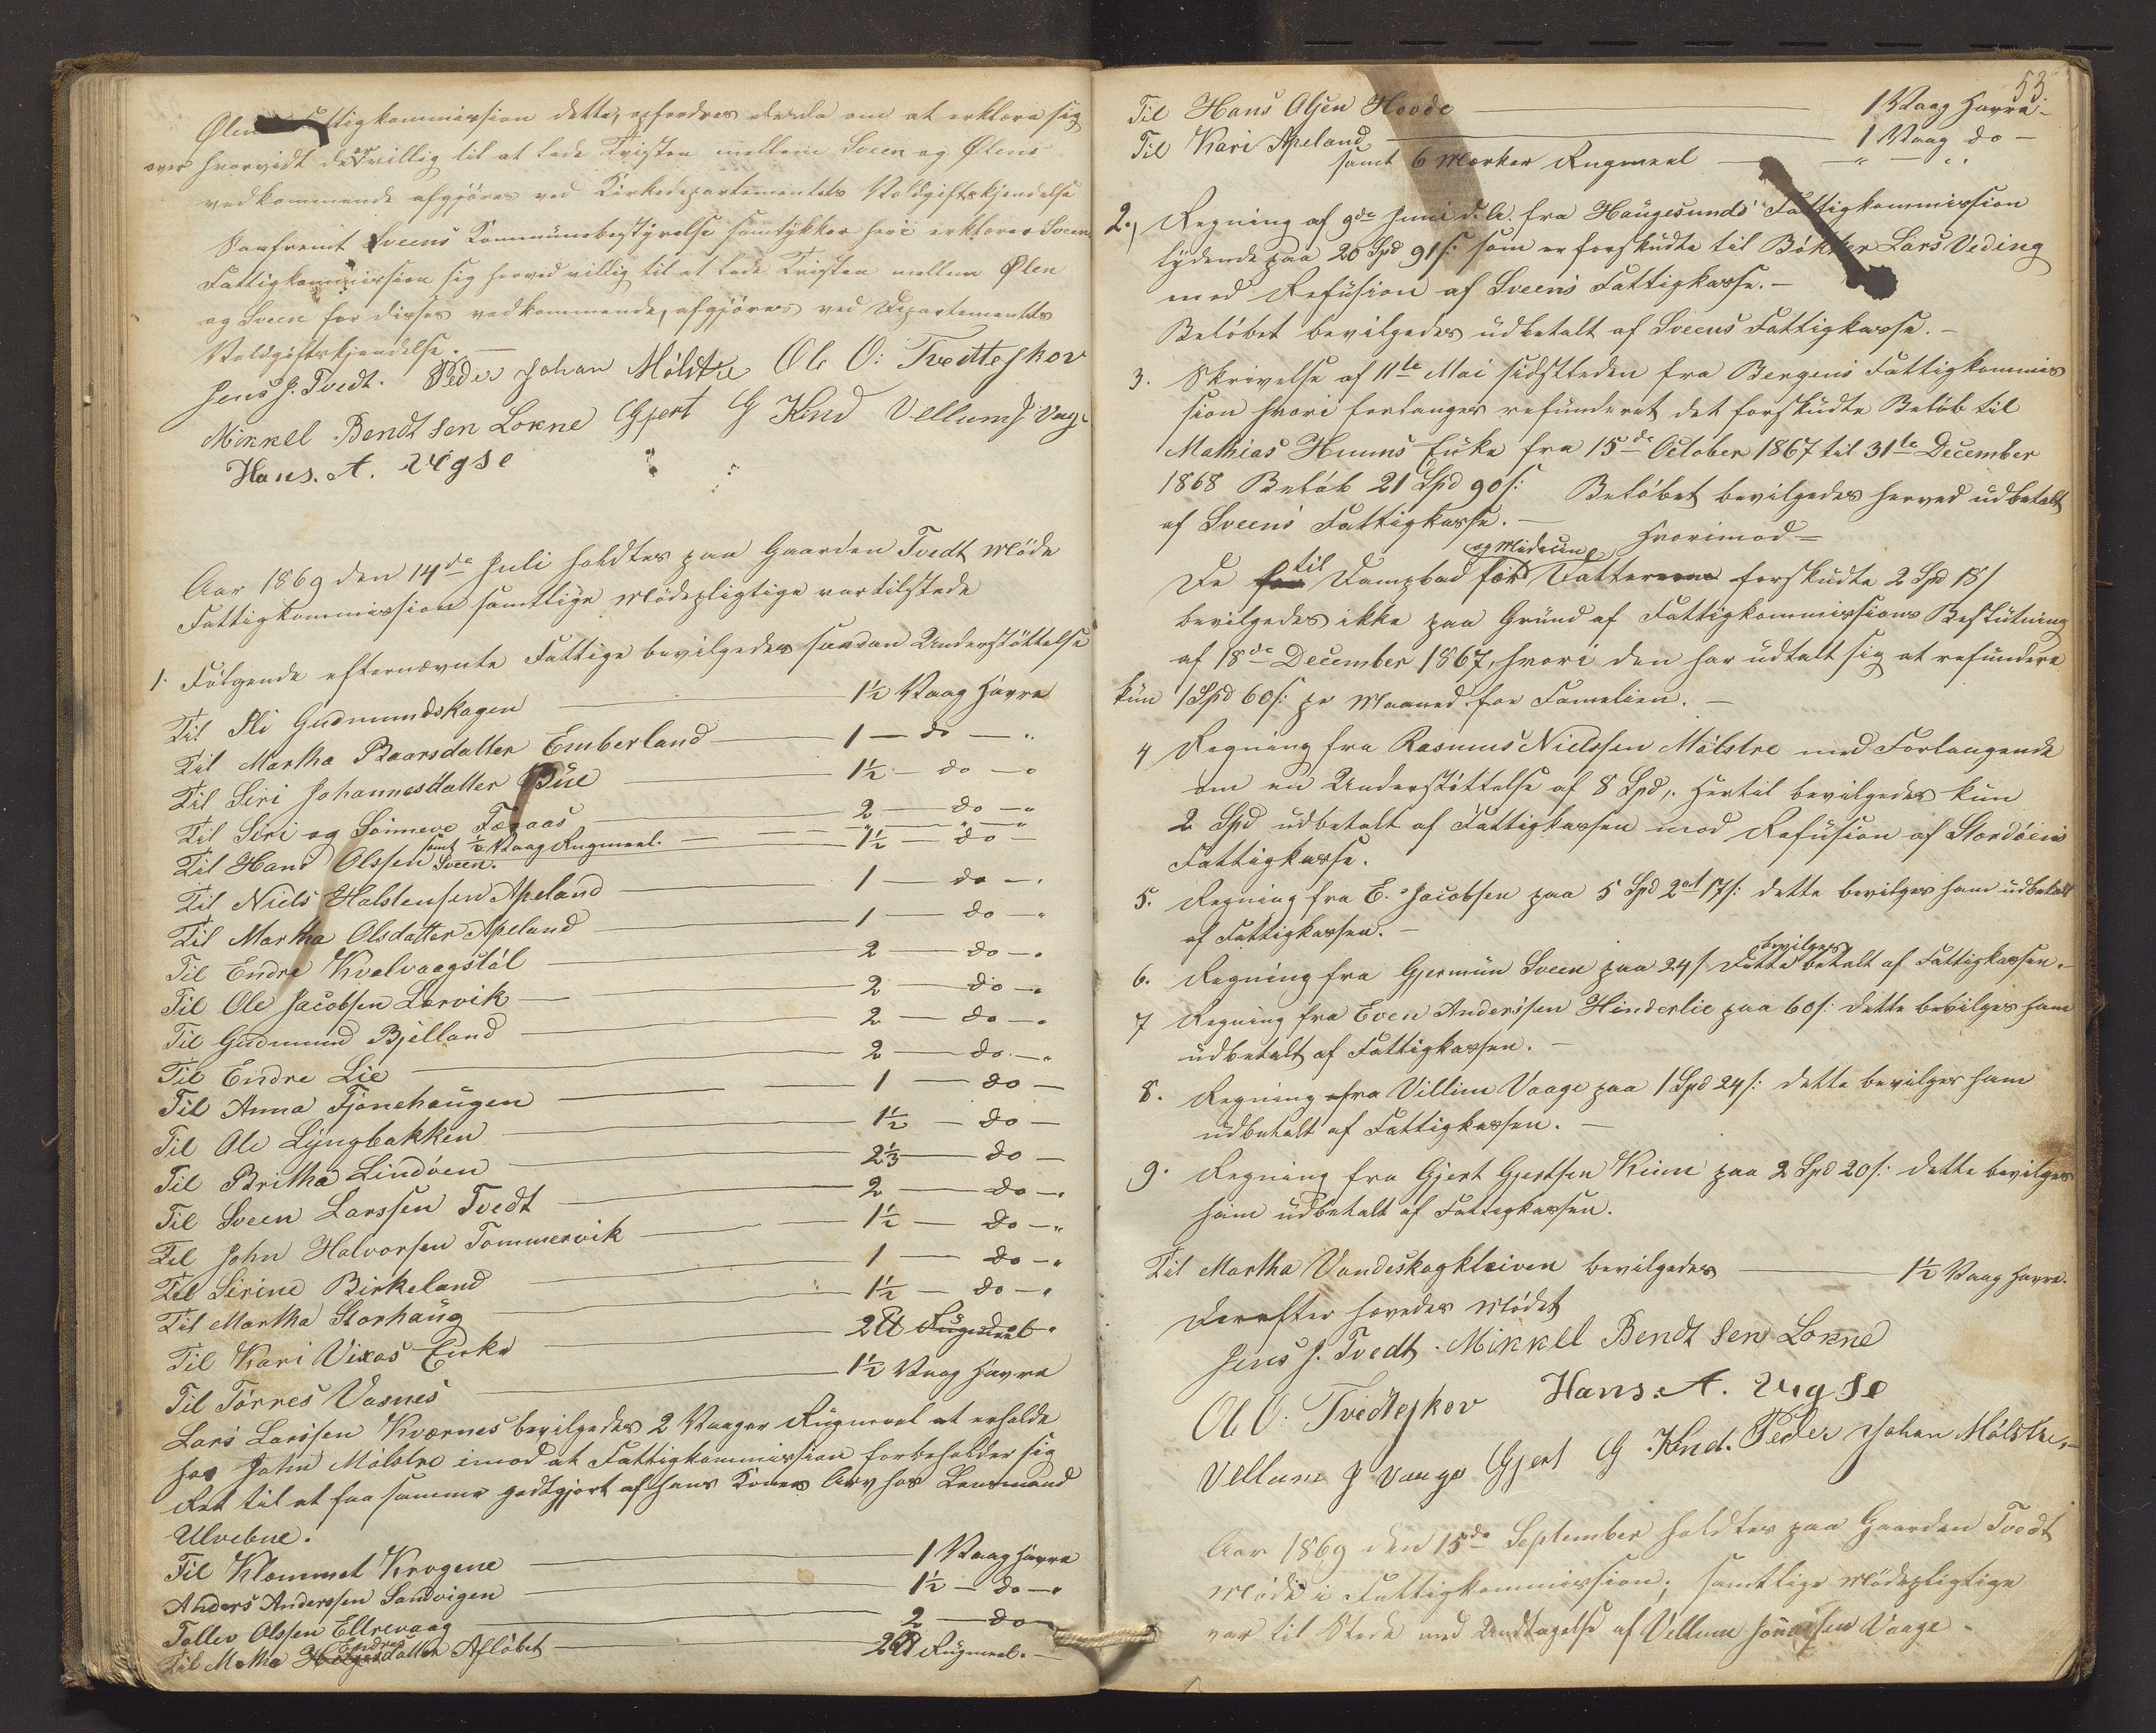 Ølens Fattigkommission dette, opfordres denne om at erklære sig
over hvorvidt de er villig til at lade Tvisten mellem Sveen og Ølens
vedkommende afgjøres ved Kirkedepartementets Voldgiftskjendelse
Saafremt Sveens Kommunebestyrelse samtykker heri erklærer Sveens
Fattigkommission sig herved villig til at lade Tvisten mellem Ølen
og Sveen for disses vedkommende, afgjøres ved Departementets
Voldgiftskjendelse. —
Jens J. Tvedt. Peder Johan Mølstre Ole O: Tvedteskov
Mikkel Bendtsen Lokne Gjert G Kind Vellum J Vage
Hans. A. Vigse
Aar 1869 den 14de Juli holdtes paa Gaarden Tvedt Møde
Fattigkommission samtlige Mødepligtige var tilstede
1. Følgende efternævnte Fattige bevilgedes saadan Understøttelse
Til Eli Gudmundskagen — 1½ Vaag Havre
Til Martha Baarsdatter Emberland — 1 — do — "
Til Siri Johannesdatter Bue — 1½ — do — "
Til Siri og Sønneve Tæraas — 2 — do — "
samt ½ Vaag Rugmeel. — " — " — "
Til Hans Olssen Sveen. — 1½ — do
Til Niels Halstensen Apeland — 1 — do — "
Til Martha Olsdatter Apeland — 1 — do — "
Til Endre Kvalvaagstøl — 2 — do — "
Til Ole Jacobsen Larvik — 2 — do — "
Til Gudmund Bjelland — 2 — do — "
Til Endre Lie — 2 — do — "
Til Anna Fjonehaugen — 1 — do —
Til Ole Lyngbakken — 1½ — do —
Til Britha Lindøen — 2⅓ — do —
Til Sveen Larssen Tvedt — 2 — do — "
Til John Halvorsen Tommervik — 1½ — do — "
Til Sirine Birkeland — 1 — do — "
Til Martha Storhaug — 1½ — do — "
Til Kari Vixas Enke — 2 Rugmeel do "
Til Tørres Vasnes — 1½ Vaag Havre
Lars Larssen Kværnes bevilgedes 2 Vaager Rugmeel at erholde
hos John Mølstre imod at Fattigkommission forbeholder sig
Ret til at faa samme godtgjort af hans Kones Arv hos Lensmand
Ulvebne.
Til Klemmet Krogene — 1 Vaag Havre
Anders Anderssen Sandvigen — 1½ — do — "
Tollev Olssen Ellrevaag — 2 — do
Til Martha Helges Endresdatter Afløbet — 2 Rugmeel. —
53.
Til Hans Olsen Hovde — 1 Vaag Havre. —
Til Kari Apeland — 1 Vaag do —
samt 6 Mærker Rugmeel — " — "
2., Regning af 9de Juni d. A. fra Haugesunds Fattigkommission
lydende paa 20 Spd 91 s: som er forskudte til Bøkker Lars Veding
mod Refusion af Sveens Fattigkasse. —
Beløbet bevilgedes udbetalt af Sveens Fattigkasse. —
3. Skrivelse af 11te Mai sidstleden fra Bergens Fattigkommis
sion hvori forlanges refunderet det forskudte Beløb til
Mathias Hmms Enke fra 15de October 1867 til 31te December
1868 Beløb 21 Spd 90 s: Beløbet bevilgedes herved udbetalt
af Sveens Fattigkasse. — Hvorimod —
De for til Dampbad og Medecin for Datteren forskudte 2 Spd 18 s
bevilgedes ikke paa Grund af Fattigkommissions Beslutning
af 18de December 1867, hvori den har udtalt sig at refundere
kun 1 Spd 60 s: pr Maaned for Famelien. —
4 Regning fra Rasmus Nielssen Mølstre med Forlangende
om en Understøttelse af 8 Spd,. Hertil bevilgedes kun
2 Spd udbetalt af Fattigkassen mod Refusion af Stordøens
Fattigkasse.
5. Regning fra E. Jacobsen paa 5 Spd 2 ort 17 s: dette bevilges ham udbetalt
af Fattigkassen. —
6. Regning fra Gjermun Sveen paa 24 s Dette bevilges betalt af Fattigkassen. —
7 Regning fra Even Anderssen Hinderlie paa 60 s: dette bevilges ham
udbetalt af Fattigkassen. —
8. Regning fra Villim Vaage paa 1 Spd 24 s: dette bevilges ham
udbetalt af Fattigkassen. —
9. Regning fra Gjert Gjertsen Kinn paa 2 Spd 20 s: dette bevilges
ham udbetalt af Fattigkassen.
Til Martha Vandeskogkleiven bevilgedes — 1½ Vaag Havre.
Derefter hævedes Mødet
Jens J. Tvedt. Mikkel Bendtsen Lokne
Ole O: Tvedteskov Hans. A. Vigse
Vellum J Vaage Gjert G Kind. Peder Johan Mølstre, —
Aar 1869 den 15de September holdtes paa Gaarden Tvedt
Møde i Fattigkommission; samtlige Mødepligtige
var til Stede med Undtagelse af Vellum Jonassen Vaage.